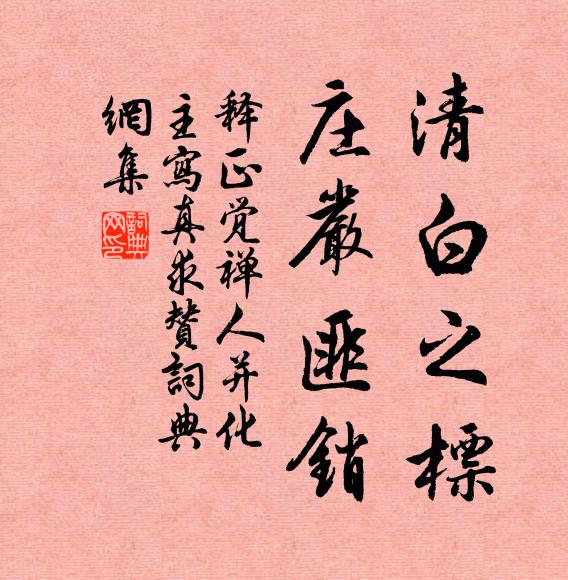 清白之標
庄嚴匪銷
释正觉禅人并化
主寫真求贊詞典
網集
詞典網印